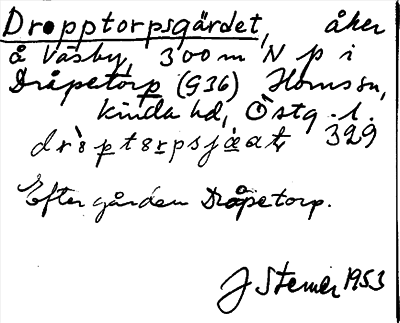 Dropptorpsgärdet, åker
å Väsby, 300 m N p i
Dråpetorp (G36) Horns sn,
Kinda hd, Östg. l.
329
Efter gården Dråpetorp.
J Sterner 1953